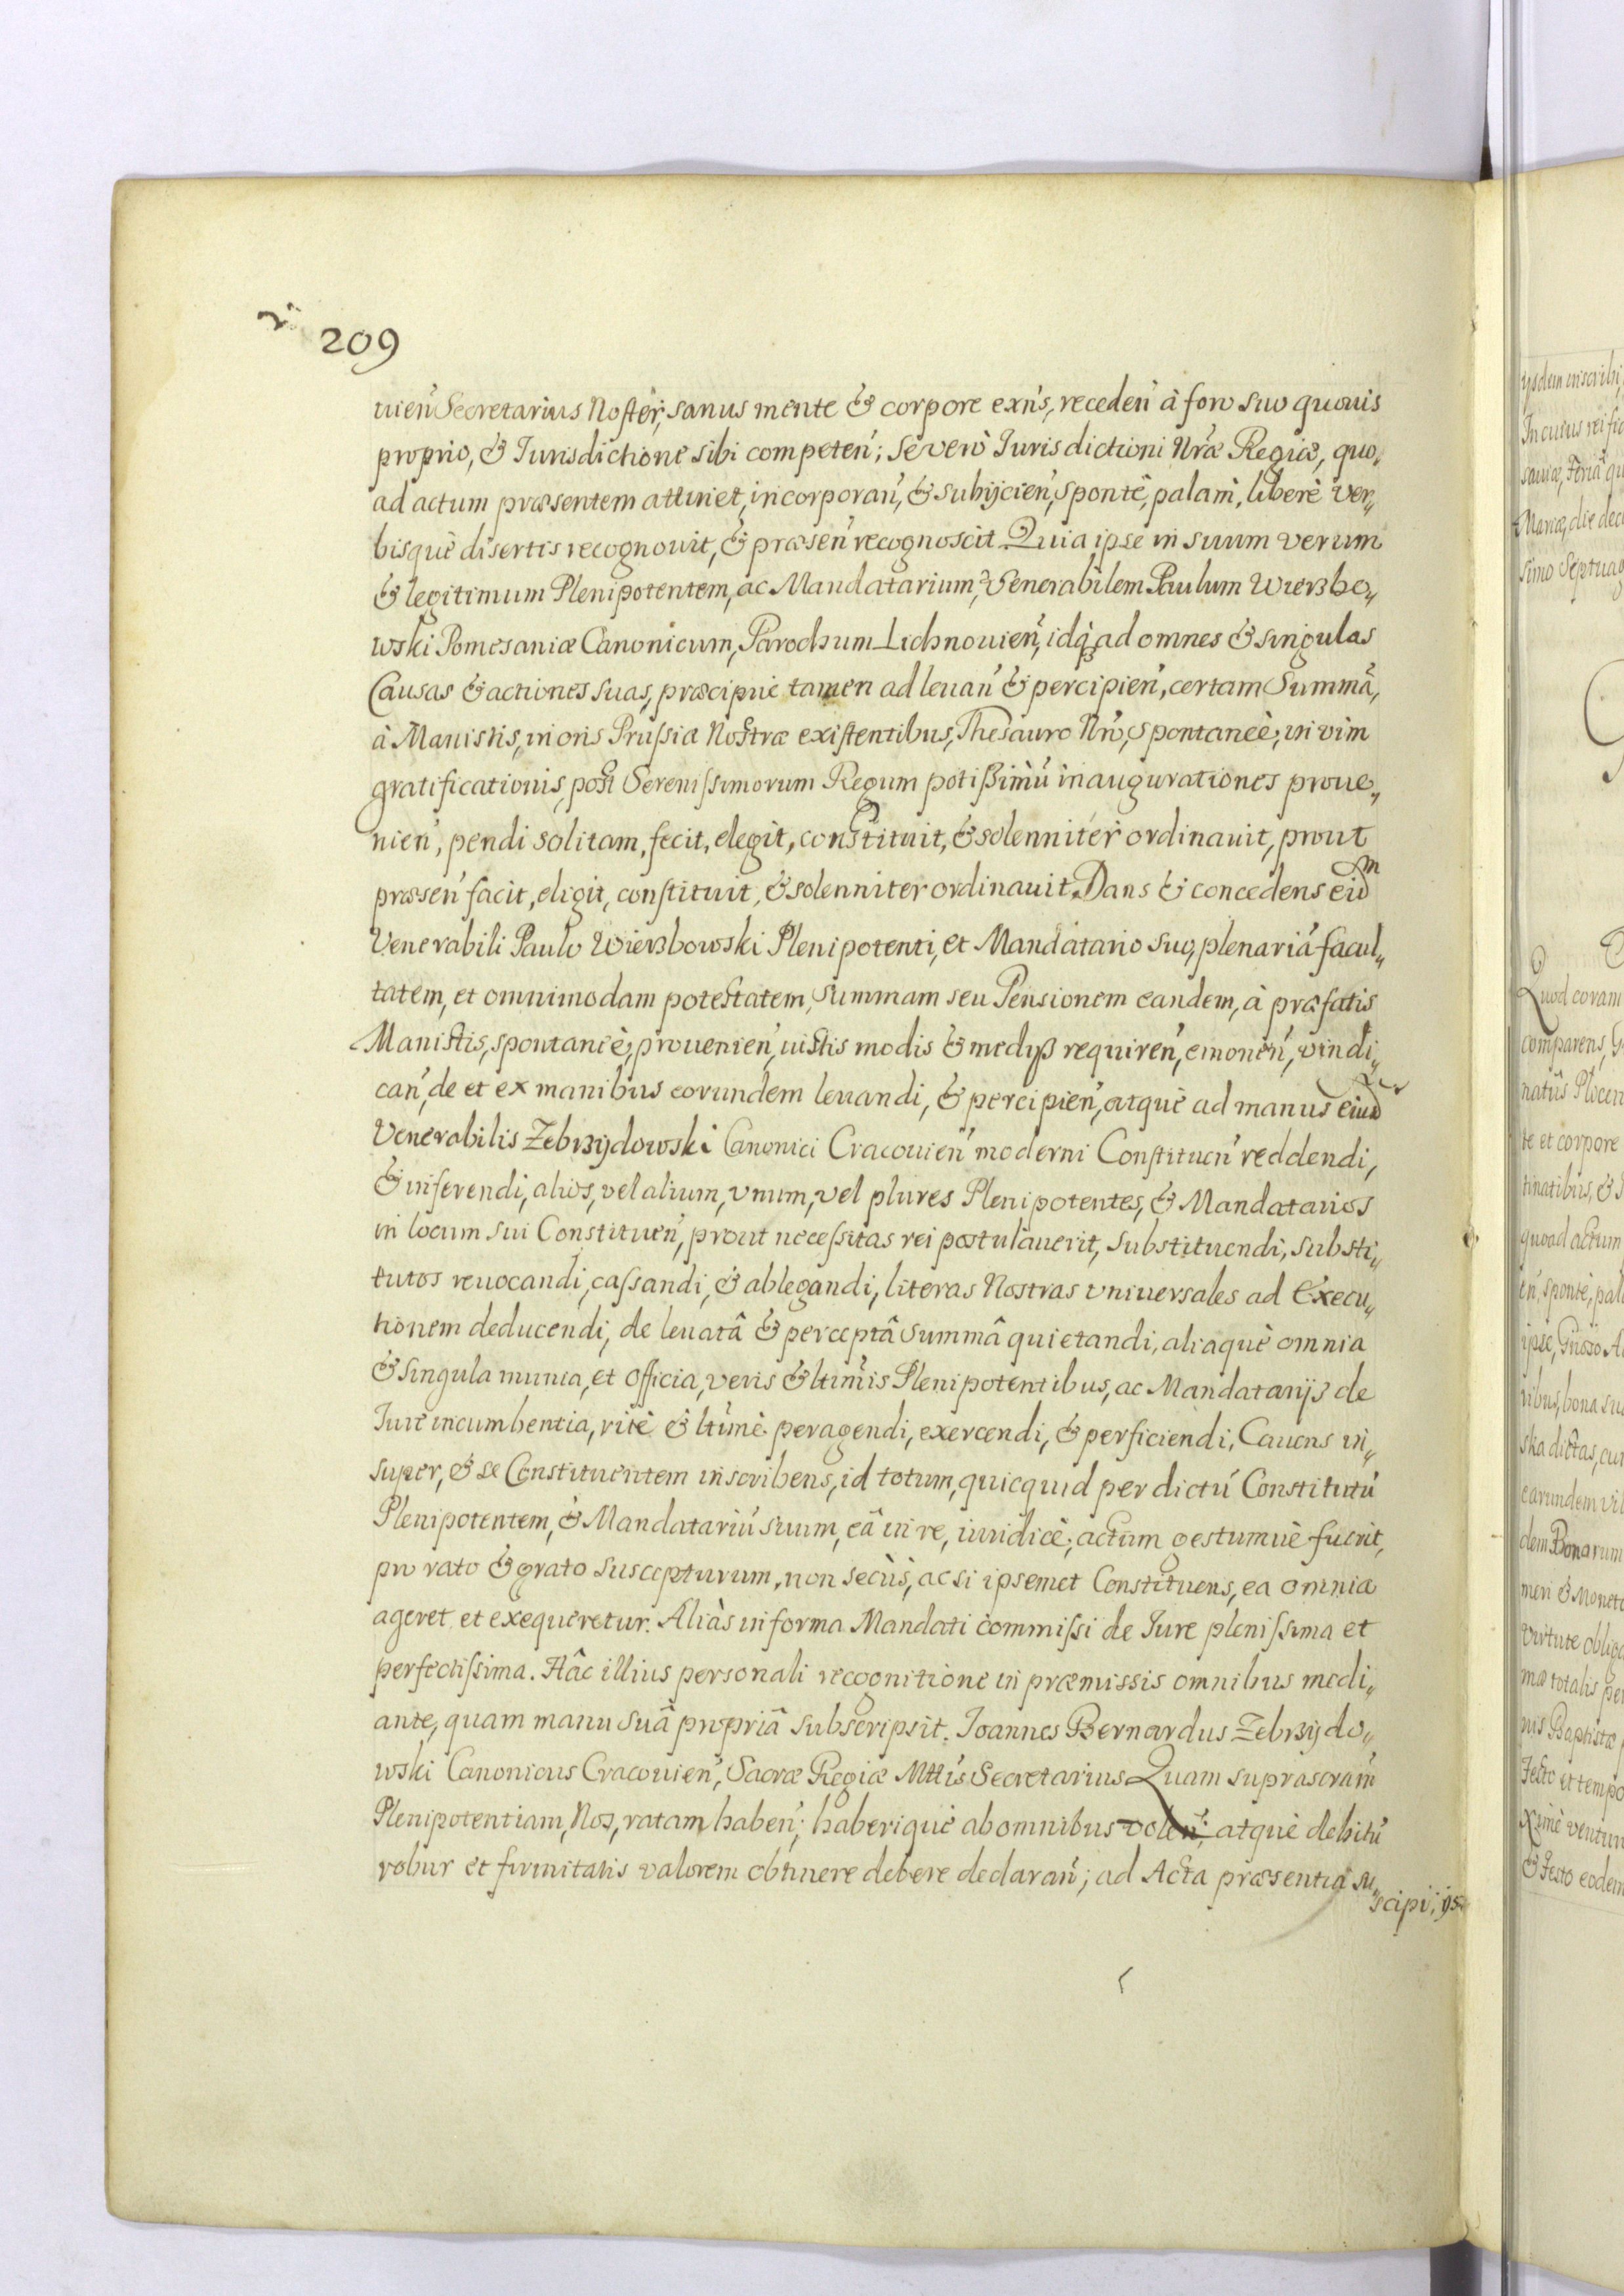 209
uien̄ Secretarius Noster, sanus mente & corpore exñs, receden̄ à foro suo quouis
proprio, & Iurisdictione sibi competen̄; se verò Iurisdictioni Nr̃æ Regiæ, quo„
ad actum præsentem attinet, incorporan̄, & subijcien̄, spontè, palàm, liberè ver„
bisquè disertis recognouit, & præsen̄ recognoscit. Quia ipse in suum verum
& legitimum Plenipotentem, ac Mandatarium, Venerabilem Paulum Wierzbo„
wski Pomesaniæ Canonicum, Parochum Lichnouien̄, idq̃ ad omnes & singulas
Causas & actiones suas, præcipuè tamen ad leuan̄ & percipien̄, certam Summã,
à Manistis, in oris Prussiæ Nostræ existentibus, Thesauro Nr̃o, spontaneè, in vim
gratificationis, post Serenissimorum Regum potissimũ inaugurationes proue„
nien̄, pendi solitam, fecit, elegit, constituit, & solenniter ordinauit, prout
præsen̄ facit, eligit, constituit, & solenniter ordinauit. Dans & concedens eidm
Venerabili Paulo Wierzbowski Plenipotenti, et Mandatario suo, plenariã facul„
tatem, et omnimodam potestatem, Summam seu Pensionem eandem, à præfatis
Manistis, spontaneè, prouenien̄, iustis modis & medijs requiren̄, emonen̄, vindi„
can̄, de et ex manibus eorundem leuandi, & percipien̄, atquè ad manus eiusd
Venerabilis Zebrzydowski Canonici Cracouien̄ moderni Constituen̄ reddendi,
& inferendi, alios, vel alium, vnum, vel plures Plenipotentes, & Mandatarios
in locum sui Constituen̄, prout necessitas rei postulauerit, substituendi, substi„
tutos reuocandi, cassandi, & ablegandi, literas Nostras vniuersales ad Execu„
tionem deducendi, de leuatâ & perceptâ Summâ quietandi, aliaquè omnia
& singula munia, et officia, veris & ltimis Plenipotentibus, ac Mandatarijs de
Iure incumbentia, ritè & ltimè peragendi, exercendi, & perficiendi, Cauens in„
super, & se Constituentem inscribens, id totum, quicquid per dictũ Constitutũ
Plenipotentem, & Mandatariũ suum, eâ in re, iuridicè, actum gestumuè fuerit,
pro rato & grato suscepturum, non secùs, ac si ipsemet Constituens, ea omnia
ageret et exequeretur. Aliàs in forma Mandati commissi de Iure plenissima et
perfectissima. Hâc illius personali recognitione in præmissis omnibus medi„
ante, quam manu suâ propriâ subscripsit. Ioannes Bernardus Zebrzydo„
wski Canonicus Cracouien̄, Sacræ Regiæ Mttis Secretarius. Quam suprascram̄
Plenipotentiam, Nos, ratam haben̄; haberiquè ab omnibus volen̄; atquè debitũ
robur et firmitatis valorem obtinere debere declaran̄; ad Acta præsentia su„
scipi, ijs„